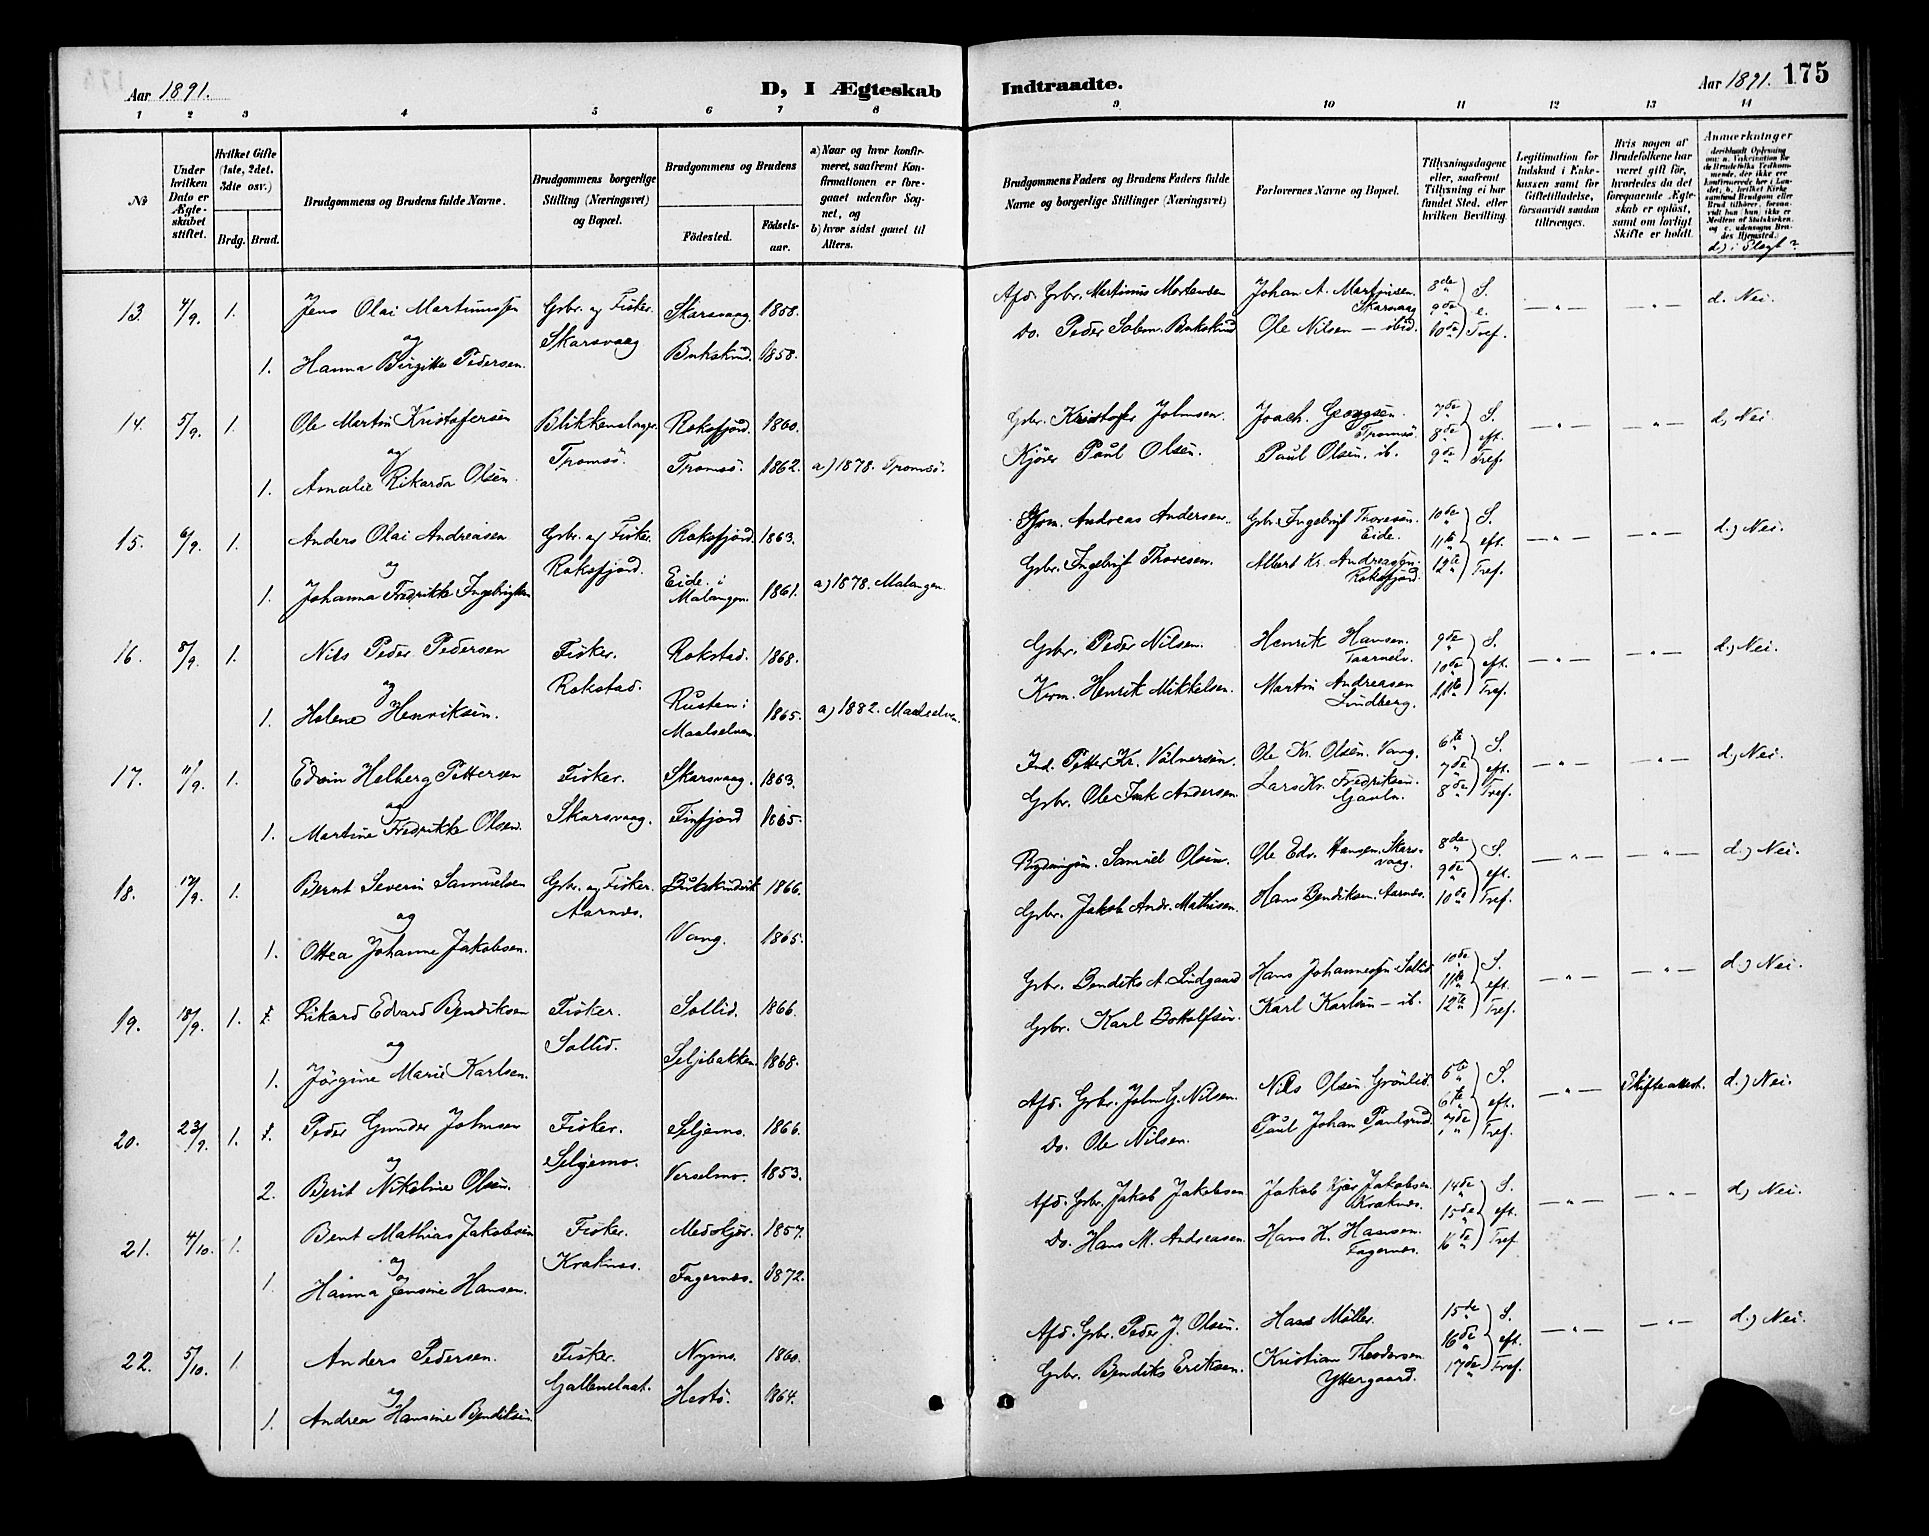 Aar 1891. D, I Ægteskab Indtraadte. Aar 1891. 175
1 2 3 4 5 6 7 8 9 10 11 12 13 14
No
Under hvilken Dato er Ægteskabet stiftet.
Hvilket Gifte (1ste, 2det. 3die osv.)
Brdg. Brud.
Brudgommens og Brudens fulde Navne.
Brudgommens borgerlige Stilling (Næringsvei) og Bopæl.
Brudgommens og Brudens
Fødested. Fødselsaar.
a) Naar og hvor konfirmeret, saafremt Konfirmationen er foregaaet udenfor Sognet, og
b) hvor sidst gaaet til Alters.
Brudgommens Faders og Brudens Faders fulde Navne og borgerlige Stillinger (Næringsvei)
Forlovernes Navne og Bopæl.
Tillysningsdagene eller, saafremt Tillysning ei har fundet Sted, efter hvilken Bevilling.
Legitimation for Indskud i Enkekassen samt for Giftetilladelse, forsaavidt saadan tiltrænges.
Hvis nogen af Brudefolkene har været gift før, hvorledes da det foregaaende Ægteskab er opløst, samt om lovligt Skifte er holdt.
Anmærkninger
d) i Slægt?
13. 4/9. 1. Jens Olai Martinussen Gbr. og Fisker. Skarsvaag. 1858. Afd. Gbr. Martinus Mortensen Johan A. Martinsen. 8de S. — " — — " — d. Nei.
og Skarsvaag Skarsvaag 9de e.
1. Hanna Birgitte Pedersen. Bukskind. 1858. Do. Peder Salom. Bukskind Ole Nilsen — ibid. 10de Tref.
14. 5/9. 1. Ole Martin Kristofersen Blikkenslager. Roksfjord. 1860. Gbr. Kristofer Johnsen. Joach. Georgsen. 7de S. — " — — " — d) Nei.
og Tromsø. Tromsø. 8de eft.
1. Amalie Rikarda Olsen. Tromsø. 1862. a) 1878. Tromsø. Kjører Paul Olsen. Paul Olsen. ib. 9de Tref.
15. 6/9. 1. Anders Olai Andreasen Gbr. og Fisker. Roksfjord. 1863. Andreas Andersen. Gbr. Ingebrigt Thoresen. 10de S. — " — — " — d.) Nei.
og Roksfjord. Eide. 11te eft.
1. Johanna Fredrikke Ingebrigtsen Eide i Malangen. 1861. a) 1878. Malangen. Gbr. Ingebrigt Thoresen. Albert Kr. Andreassen. Roksfjord. 12te Tref.
16. 8/9. 1. Nils Peder Pedersen Fisker. Rokstad. 1868. Gbr. Peder Nilsen. Henrik Hansen. 9de S. — " — — " — d.) Nei.
og Rokstad. Taarnelv. 10de eft.
1. Helene Henriksen. Rusten i Maalselven. 1865. a) 1882. Maalselven. Henrik Mikkelsen. Martin Andreasen Lindberg. 11te Tref.
17. 11/9. 1. Edvin Helberg Pettersen Fisker. Skarsvaag. 1863. Ind. Petter Kr. Volnersen. Ole Kr. Olsen. Vang. 6te S. — " — — " — d.) Nei.
og Skarsvaag. 7de eft.
1. Martine Fredrikke Olsen. Finfjord 1865. Gbr. Ole Andersen. Lars Kr. Fredriksen. 8de Tref.
18. 12/9. 1. Bernt Severin Samuelsen Gbr. og Fisker. Bukskindvik 1866. Samuel Olsen. Ole Edv. Hansen. Skarsvaag. 8de S. — " — — " — d.) Nei.
og Aarnes. 9de eft.
1. Ottea Johanne Jakobsen. Vang. 1865. Gbr. Jakob Andr. Mathisen. Hans Bendiksen. Aarnes. 10de Tref.
19. 18/9. 1. Rikard Edvard Bendiksen Fisker. Sollid. 1866. Gbr. Bendiks A. Lindgaard Hans Johannessen. Sollid. 10de S. — " — — " — d.) Nei.
og Sollid. 11te eft.
1. Jørgine Marie Karlsen. Seljebakken. 1868. Gbr. Karl Bottolfsen. Karl Karlsen — ib. 12te Tref.
20. 23/9. 1. Peder Gunder Johnsen Fisker. Seljemo. 1866. Afd. Gbr. John G. Nilsen. Nils Olsen Grønlid. 5te S. — " — Skifteattest. d.) Nei.
og Seljemo 6te eft.
2. Berit Nikoline Olsen. Verselmo. 1853. Do. Ole Nilsen. Paul Johan Paulsrud. 7de Tref.
21. 4/10. 1. Bent Mathias Jakobsen Fisker. Medskjer. 1857. Afd. Gbr. Jakob Jakobsen Jakob Kjær Jakobsen 14de S. — " — — " — d.) Nei.
og Kraknes. Kraknes. 15de eft.
1. Hanna Jensine Hansen. Fagernes. 1872. Do. Hans M. Andreasen. Hans H. Hansen. Fagernes. 16de Tref.
22. 5/10. 1. Anders Pedersen. Fisker. Nymo. 1860. Afd. Gbr. Peder J. Olsen. Hans Møller. 15de S. — " — — " — d.) Nei.
og Gallenslaat. 16de eft.
1. Andrea Hansine Bendiksen Hestø. 1864. Gbr. Bendiks Eriksen. Kristian Theodorsen Yttergaard. 17de Tref.